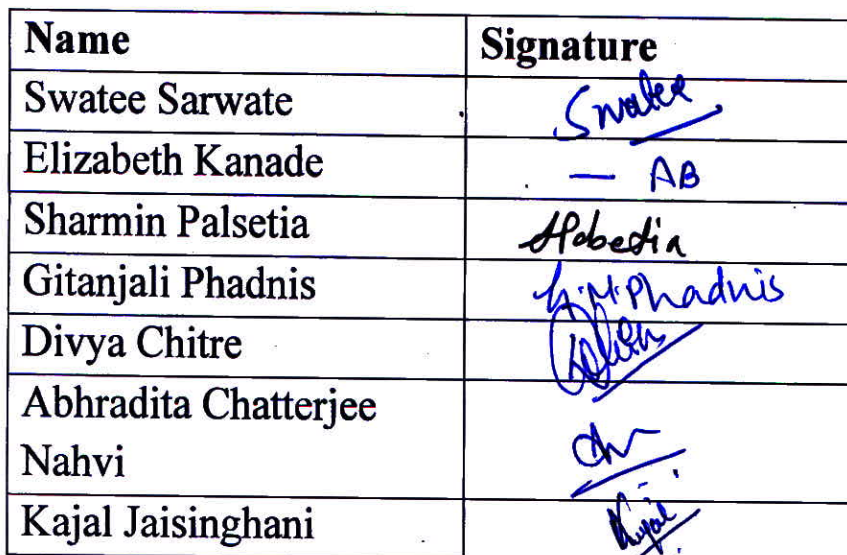 Name Signature
Swatee Sarwate Swatee
Elizabeth Kanade — AB
Sharmin Palsetia
Gitanjali Phadnis G.M.Phadnis
Divya Chitre
Abhradita Chatterjee
Nahvi
Kajal Jaisinghani Kajal